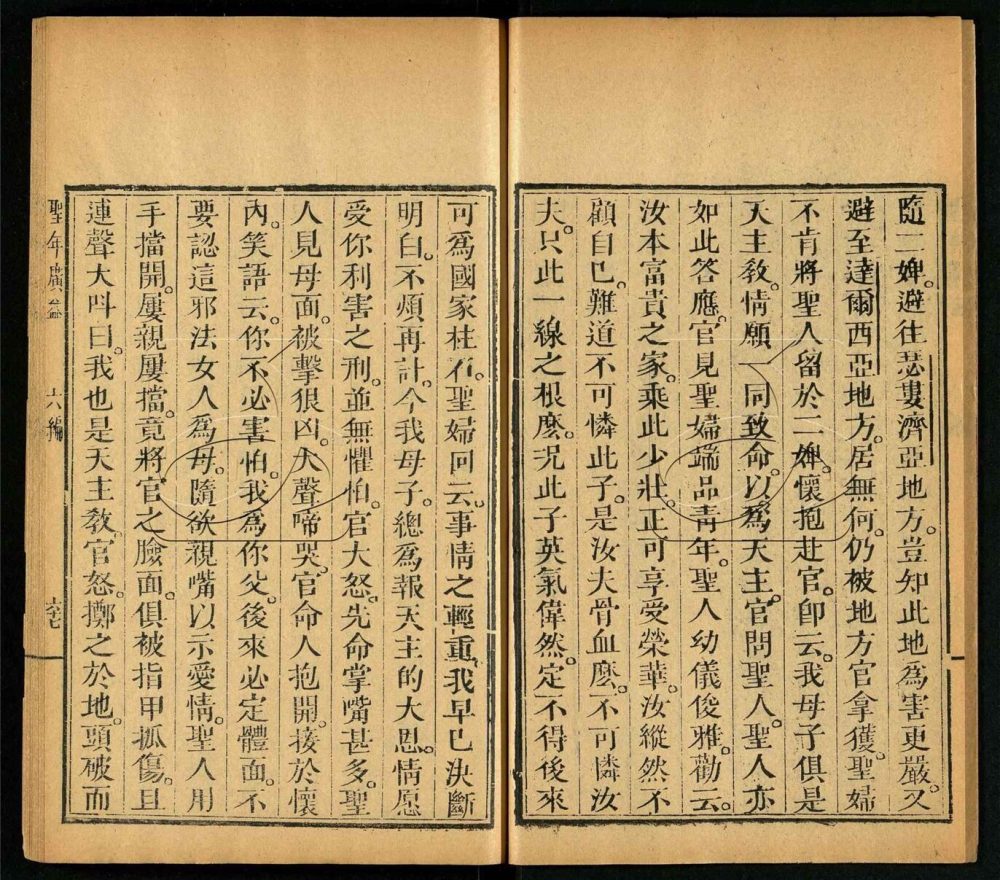 隨二婢。避往瑟婁濟亞地方。豈知此地爲害更嚴。又
避至達爾西亞地方。居無何。仍被地方官拿獲。聖婦
不肯將聖人留於二婢。懷抱赴官。卽云。我母子俱是
天主敎。情願一同致命。以爲天主。官問聖人。聖人亦
如此答應。官見聖婦端品靑年。聖人幼儀俊雅。勸云。
汝本富貴之家。乘此少壯。正可享受榮華。汝縱然不
顧自己。難道不可憐此子。是汝夫骨血麽。不可憐汝
夫。只此一線之根麽。况此子英氣偉然。定不得後來
可爲國家柱石。聖婦回云。事情之輕重。我早已決斷
明白。不煩再計。今我母子。總爲報天主的大恩。情愿
受你利害之刑。並無懼怕。官大怒。先命掌嘴甚多。聖
人見母面。被擊狠凶。大聲啼哭。官命人抱開。接於懷
內。笑語云。你不必害怕。我爲你父。後來必定體面。不
要認這邪法女人爲母。隨欲親嘴以示愛情。聖人用
手擋開。屢親屢擋。竟將官之臉面。俱被指甲抓傷。且
連聲大呌曰。我也是天主敎。官怒。擲之於地。頭破而
聖年廣益 六編 六七